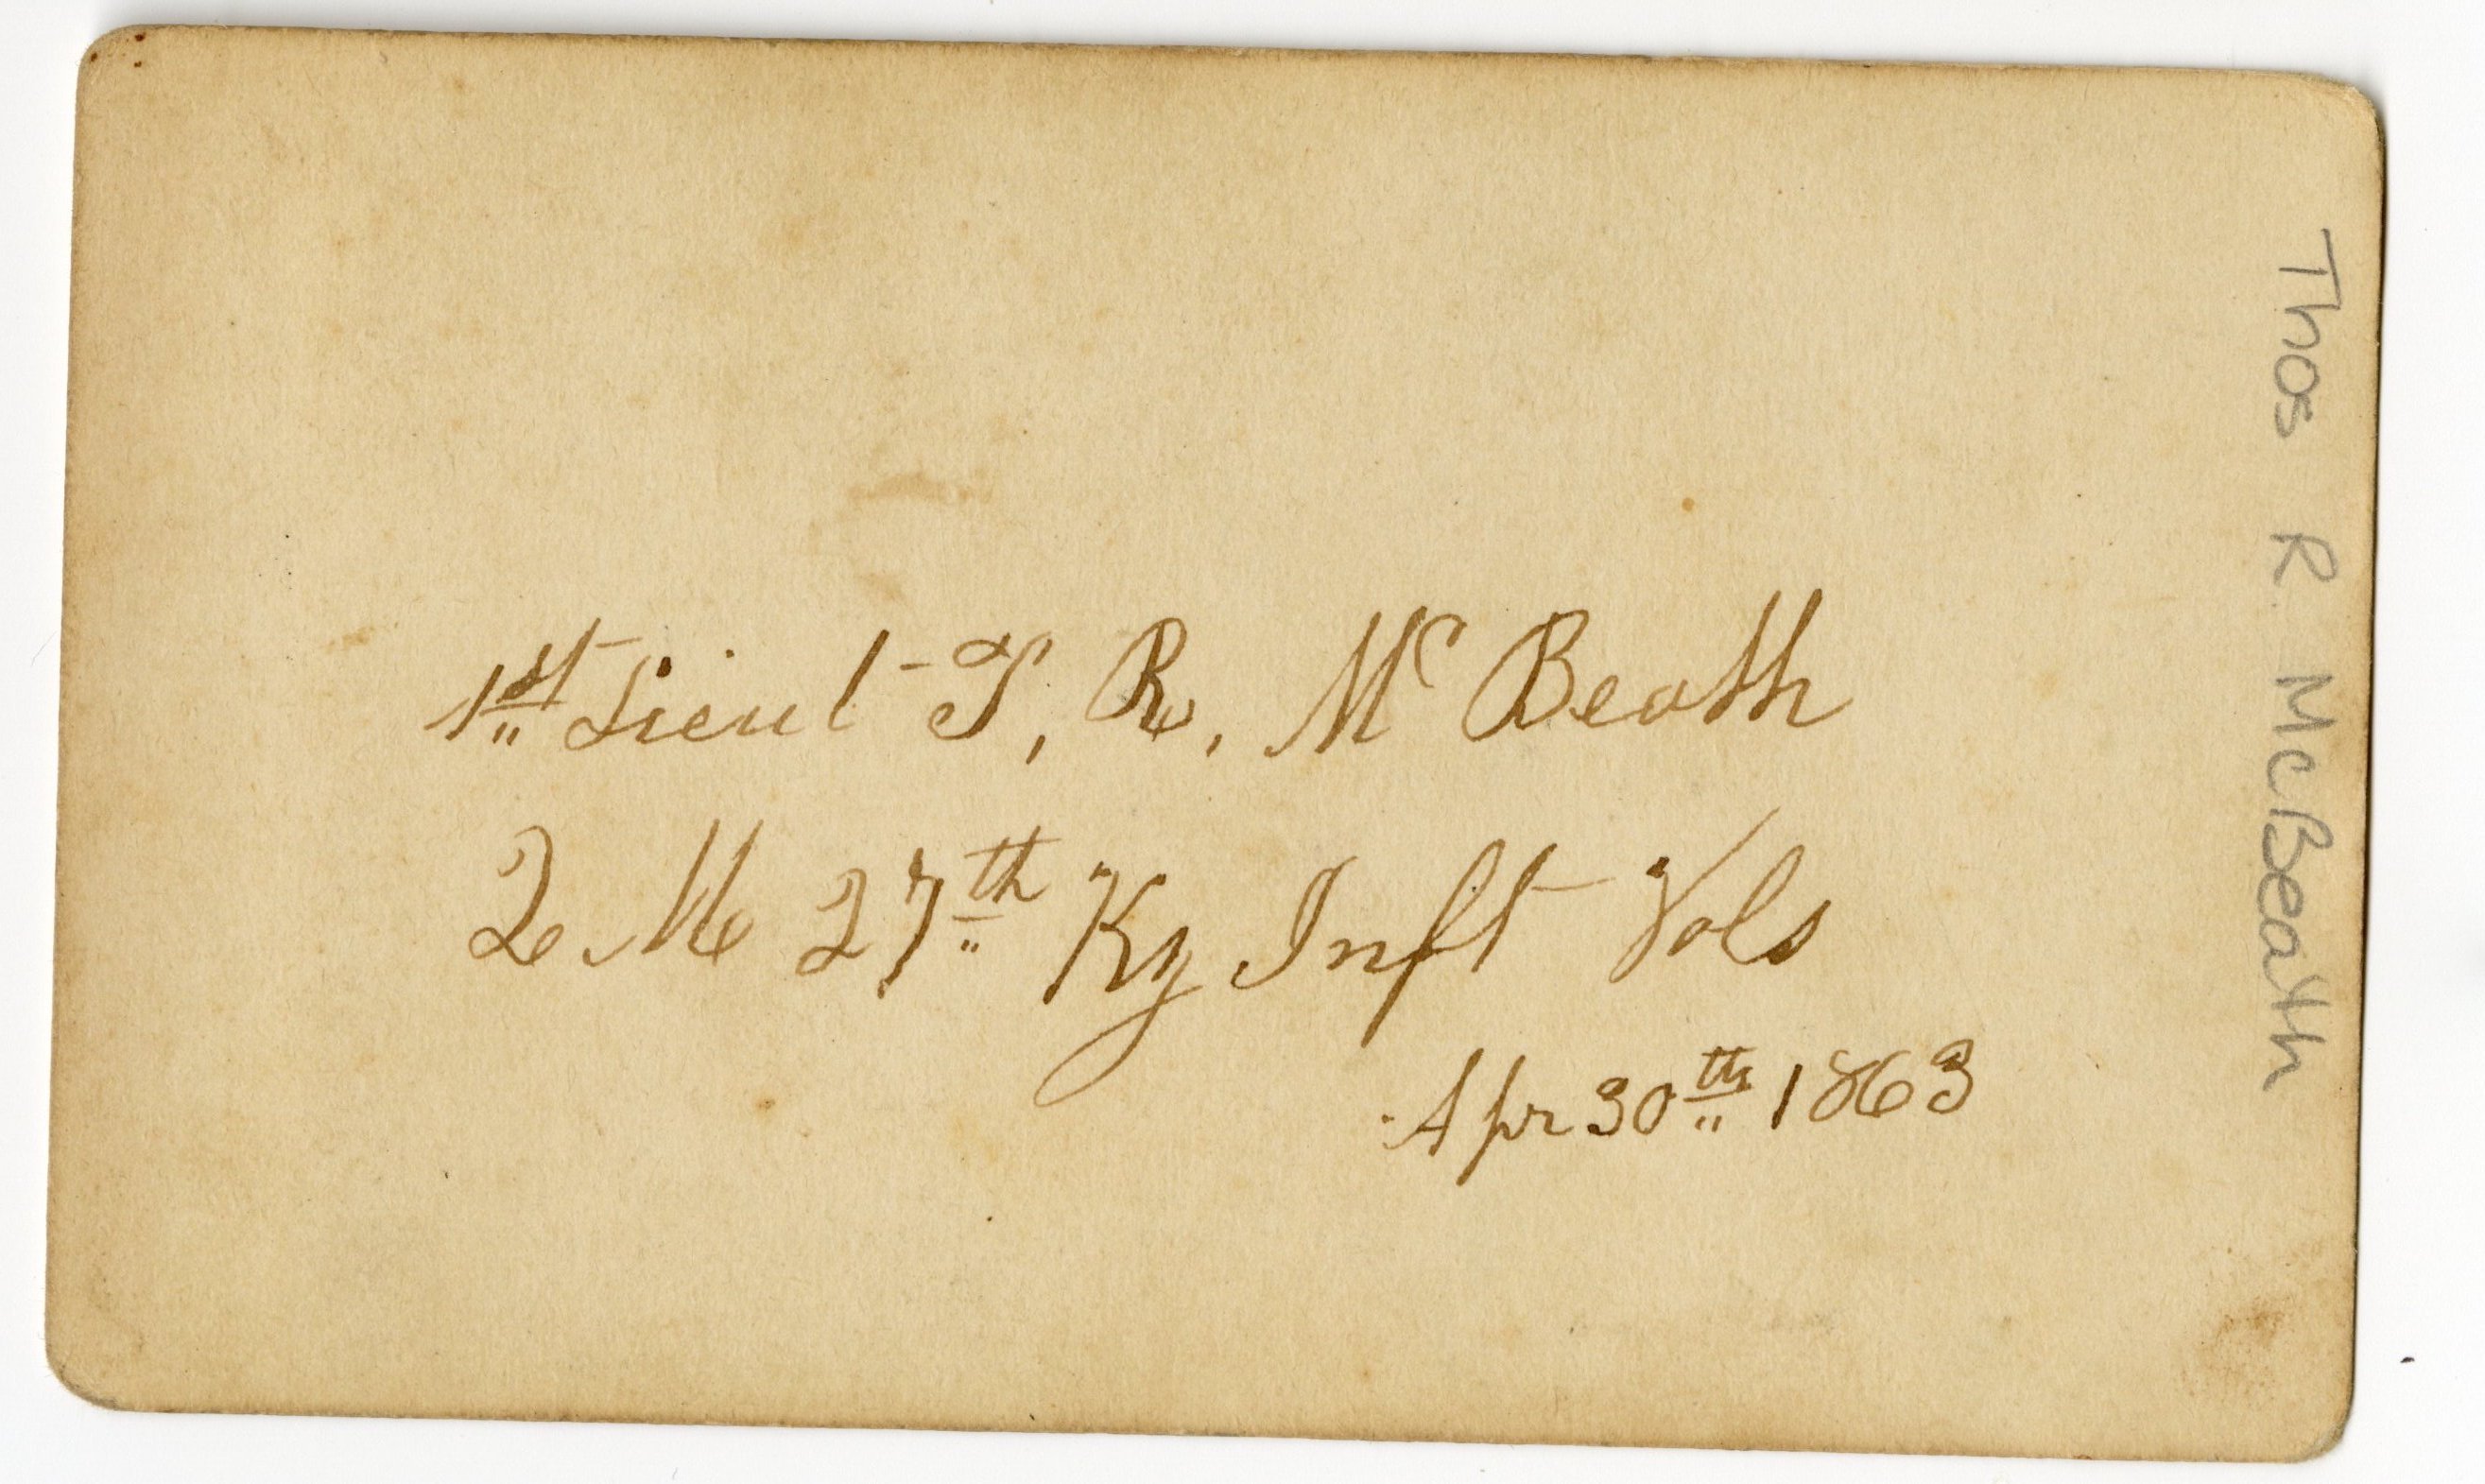 1st Lieut T, R, Mc Beath
2 M 27th Ky Inft Vols
Apr 30th 1863
Thos R McBeath